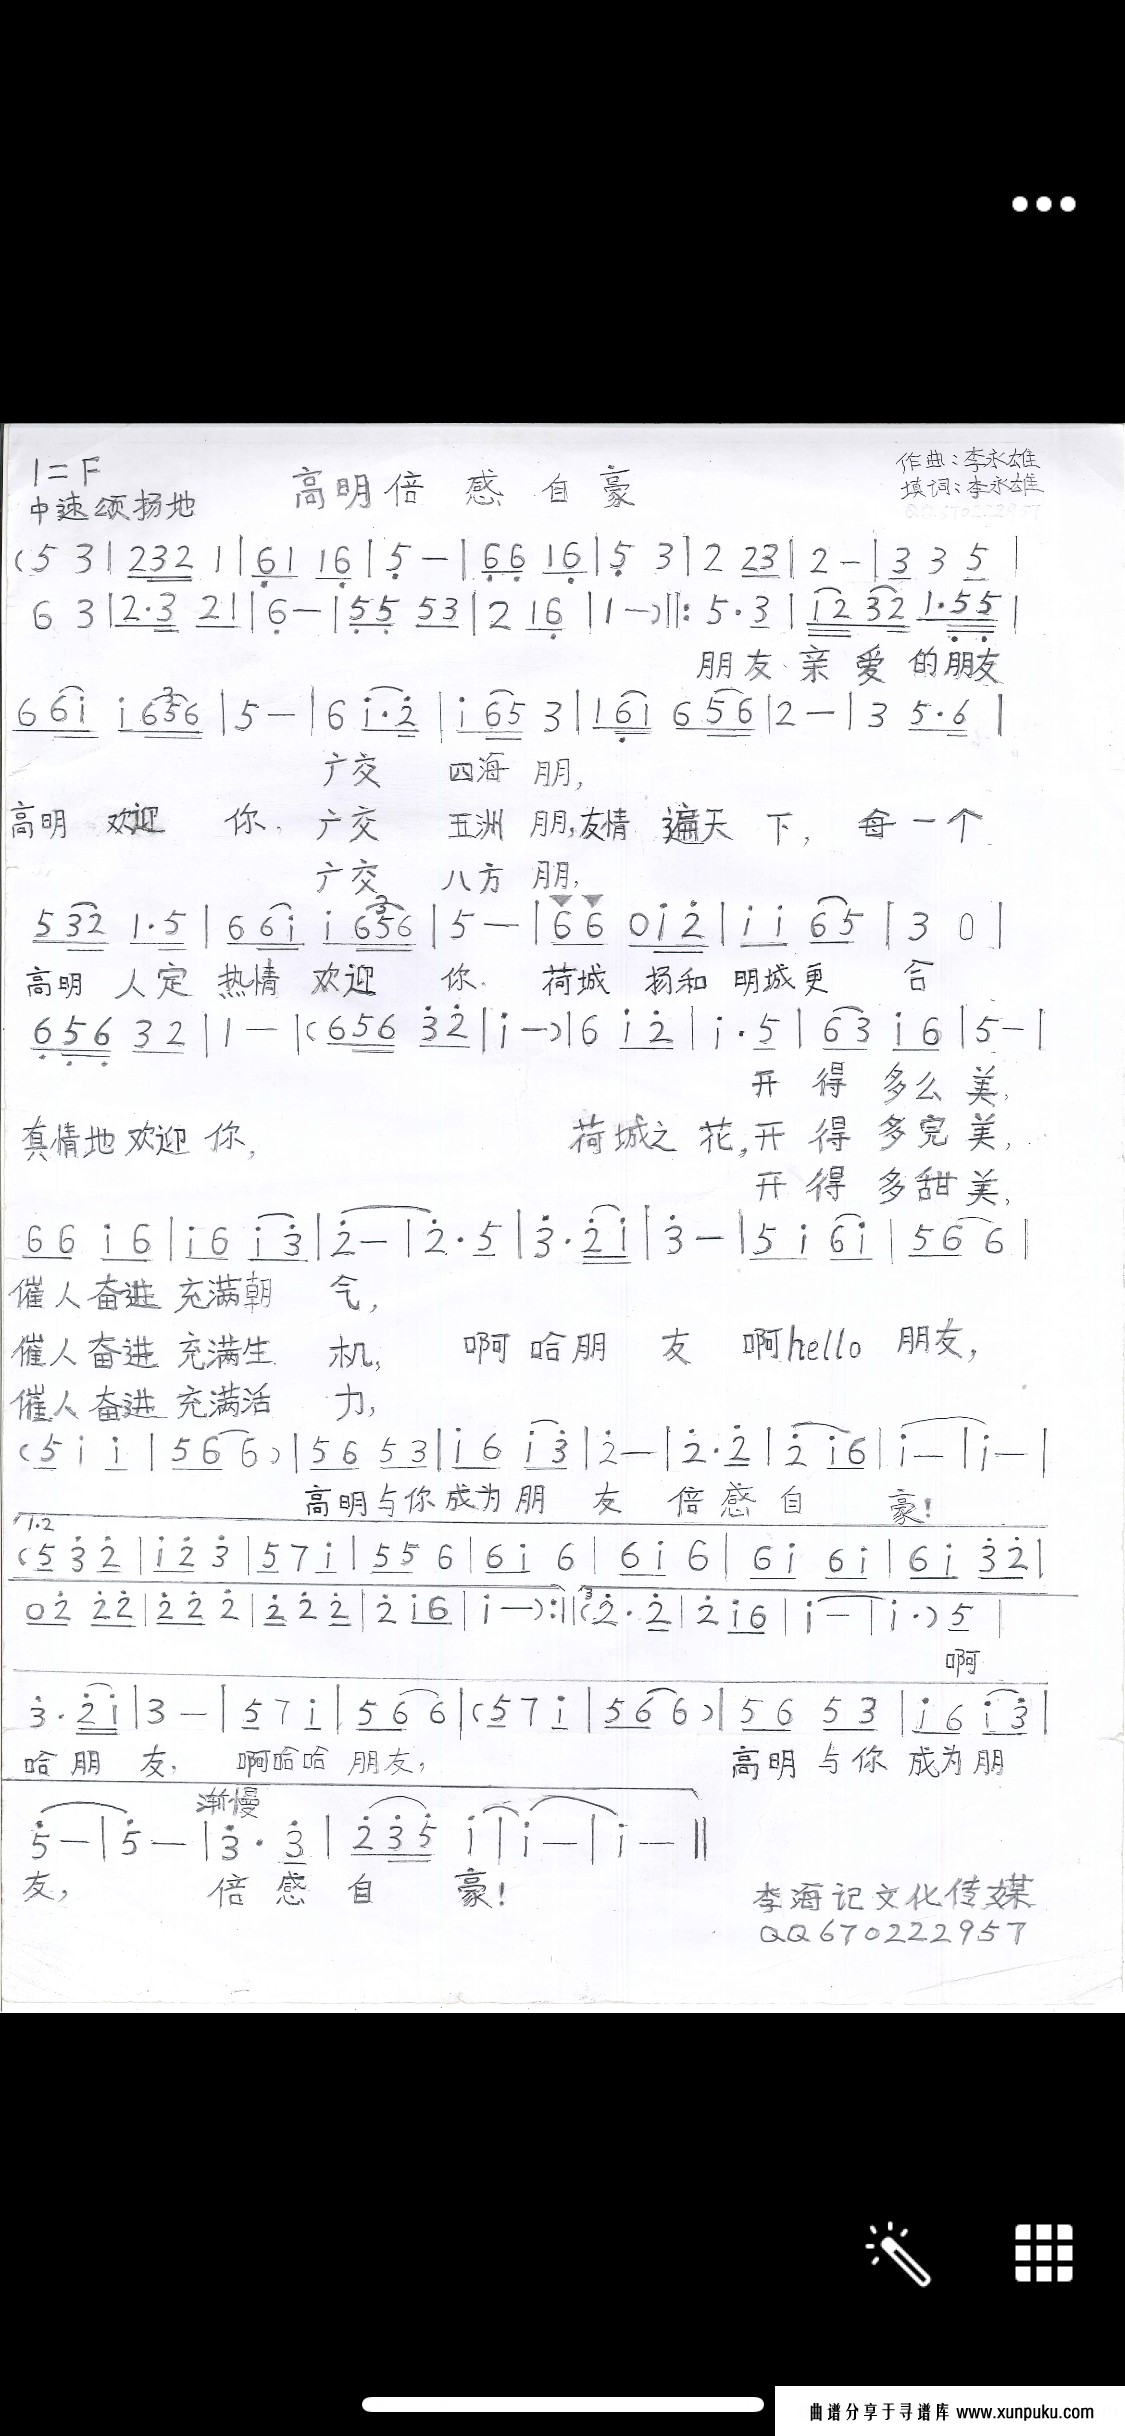 1=F
高明倍感自豪
作曲:李永雄
中速颂扬地
填词:李永雄
QQ670222957
(5 3|232 1|61 16|5-|66 16|5 3|2 23|2-|3 3 5|
6 3|2·3 21|6-|55 53|2 16|1-)‖: 5·3|i2 32 1·55|
朋友 亲爱的朋友
6 6i i 656|5-|6 i·2|i 65 3|1 6i 6 56|2-|3 5·6|
广交 四海 朋,
高明 欢迎 你. 广交 五洲 朋,友情 遍天 下, 每一个
广交 八方 朋,
5 32 1·5|6 6i i 656|5-|66 0i2|i i 65|3 0|
高明 人定 热情 欢迎 你. 荷城 扬和 明城更 合
656 32|1-|(656 32|i-)|6 i2|i·5|63 i6|5-|
开 得 多么 美,
真情地欢迎 你, 荷城之 花,开 得 多完 美,
开 得 多甜 美,
66 i6|i6 i3|2-|2·5|3·2i|3-|5 i 6i|56 6|
催人奋进 充满朝 气,
催人奋进 充满生 机, 啊 哈朋 友 啊hello 朋友,
催人奋进 充满活 力,
(5 i i|56 6)|56 53|i6 i3|2-|2·2|2 i6|i-|i-|
高明与你成为朋 友 倍感自 豪!
1.2
(5 3 2|i2 3|5 7 i|55 6|6i 6|6i 6|6i 6i|6i 32|
02 22|22 2|2 2 2|2 i6|i-):‖(2·2|2 i6|i-|i·) 5|
3
啊
3·2i|3-|5 7 i|56 6|(5 7 i|56 6)|56 53|i6 i3|
哈朋 友, 啊哈哈 朋友, 高明 与你 成为朋
渐慢
5-|5-|3·3|2 35 i|i-|i-‖
友, 倍感自 豪!
李海记文化传媒
QQ670222957
曲谱分享于寻谱库 www.xunpuku.com